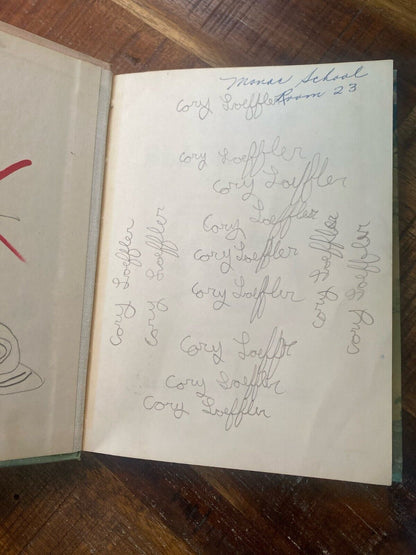 Monac School
Room 23
Cory Loeffler
Cory Loeffler
Cory Loeffler
Cory Loeffler
Cory Loeffler
Cory Loeffler
Cory Loeffler
Cory Loeffler
Cory Loeffler
Cory Loeffler
Cory Loeffler
Cory Loeffler
Cory Loeffler